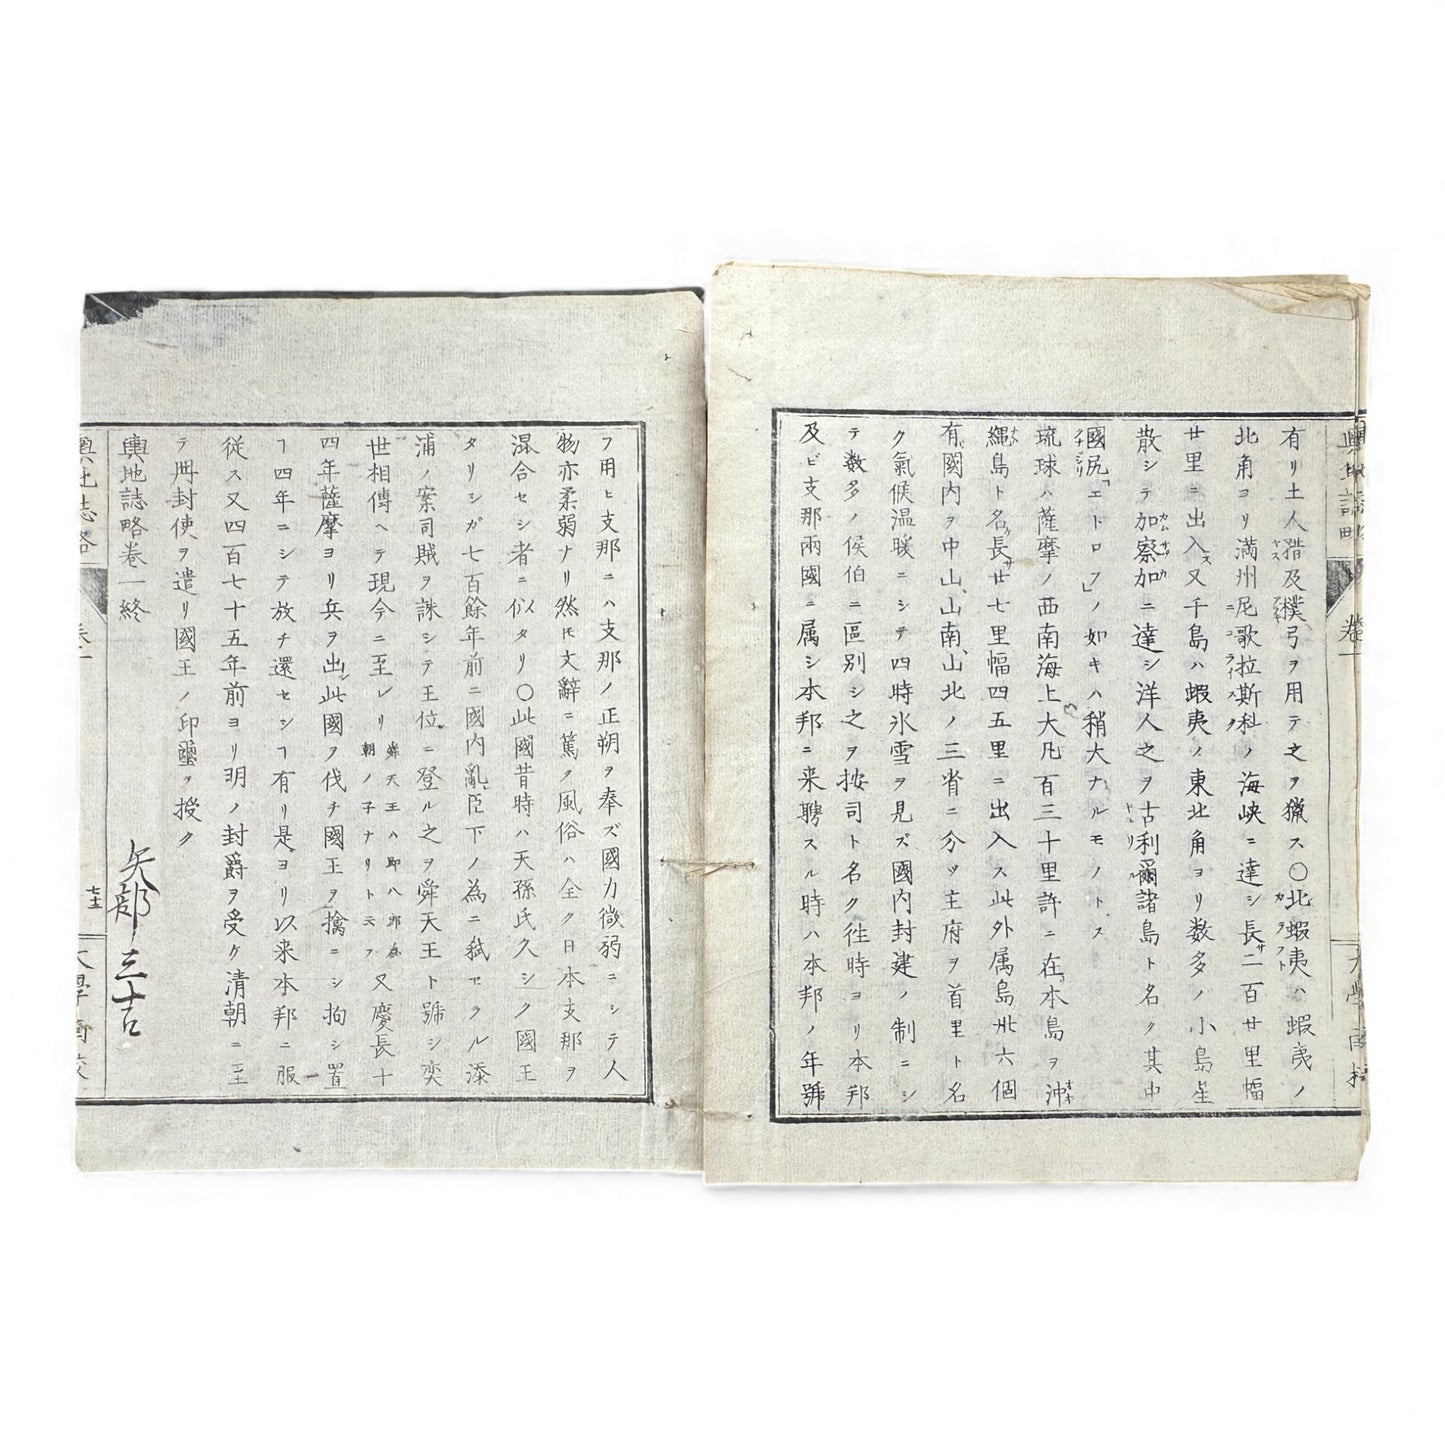 有リ土人猎及樸弓ヲ用テ之ヲ猟ス〇北蝦夷ハ蝦夷ノ
北角ヨリ満州尼歌拉斯科ノ海峡ニ達シ長サ二百廿里幅
廿里ニ出入ス又千島ハ蝦夷ノ東北角ヨリ数多ノ小島星
散シテ加察加ニ達シ洋人之ヲ古利爾諸島ト名ク其中
國尻「エトロフ」ノ如キハ稍大ナルモノトス
琉球ハ薩摩ノ西南海上大凡百三十里許ニ在リ本島ヲ沖
縄島ト名ク長サ廿七里幅四五里ニ出入ス此外属島卅六個
有リ國内ヲ中山、山南、山北ノ三省ニ分ツ主府ヲ首里ト名
ク氣候温暖ニシテ四時氷雪ヲ見ズ國内封建ノ制ニシ
テ数多ノ侯伯ニ區別シ之ヲ按司ト名ク往時ヨリ本邦
及ビ支那兩國ニ属シ本邦ニ来聘スル時ハ本邦ノ年號
ヲ用ヒ支那ニハ支那ノ正朔ヲ奉ズ國力微弱ニシテ人
物亦柔弱ナリ然ﾄﾓ文辭ニ篤ク風俗ハ全ク日本支那ヲ
混合セシ者ニ似タリ〇此國昔時ハ天孫氏久シク國王
タリシガ七百餘年前ニ國内亂臣下ノ為ニ弑セラル添
浦ノ案司賊ヲ誅シテ王位ニ登ル之ヲ舜天王ト號シ奕
世相傳ヘテ現今ニ至レリ舜天王ハ即八郎為
朝ノ子ナリト云フ又慶長十
四年薩摩ヨリ兵ヲ出シ此國ヲ伐チ國王ヲ擒ニシ拘シ置
ヿ四年ニシテ放チ還セシヿ有リ是ヨリ以来本邦ニ服
従ス又四百七十五年前ヨリ明ノ封爵ヲ受ケ清朝ニ至
テ冊封使ヲ遣リ國王ノ印璽ヲ授ク
輿地誌略巻一終
矢部
輿地誌略
巻一